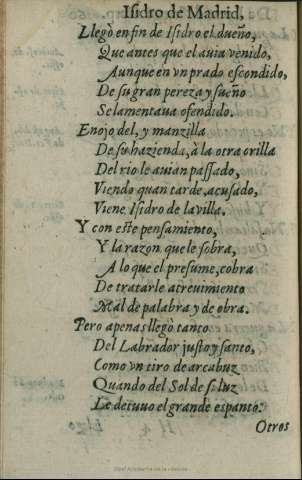 Isidro de Madrid,
Llegò en fin de Isidro el dueño,
Que antes que el auia venido,
Aunque en vn prado escondido,
De su gran pereza y sueño
Se lamentaua ofendido.
Enojo del, y manzilla
De su hazienda, à la otra orilla
Del rio le auian passado,
Viendo quan tarde, acusado,
Viene Isidro de la villa.
Y con este pensamiento,
Y la razon que le sobra,
A lo que el presume, cobra
De tratarle atreuimiento
Mal de palabra y de obra.
Pero apenas llegò tanto
Del Labrador justo y santo,
Como vn tiro de arcabuz
Quando del Sol de su luz
Le detuuo el grande espanto.
Otros